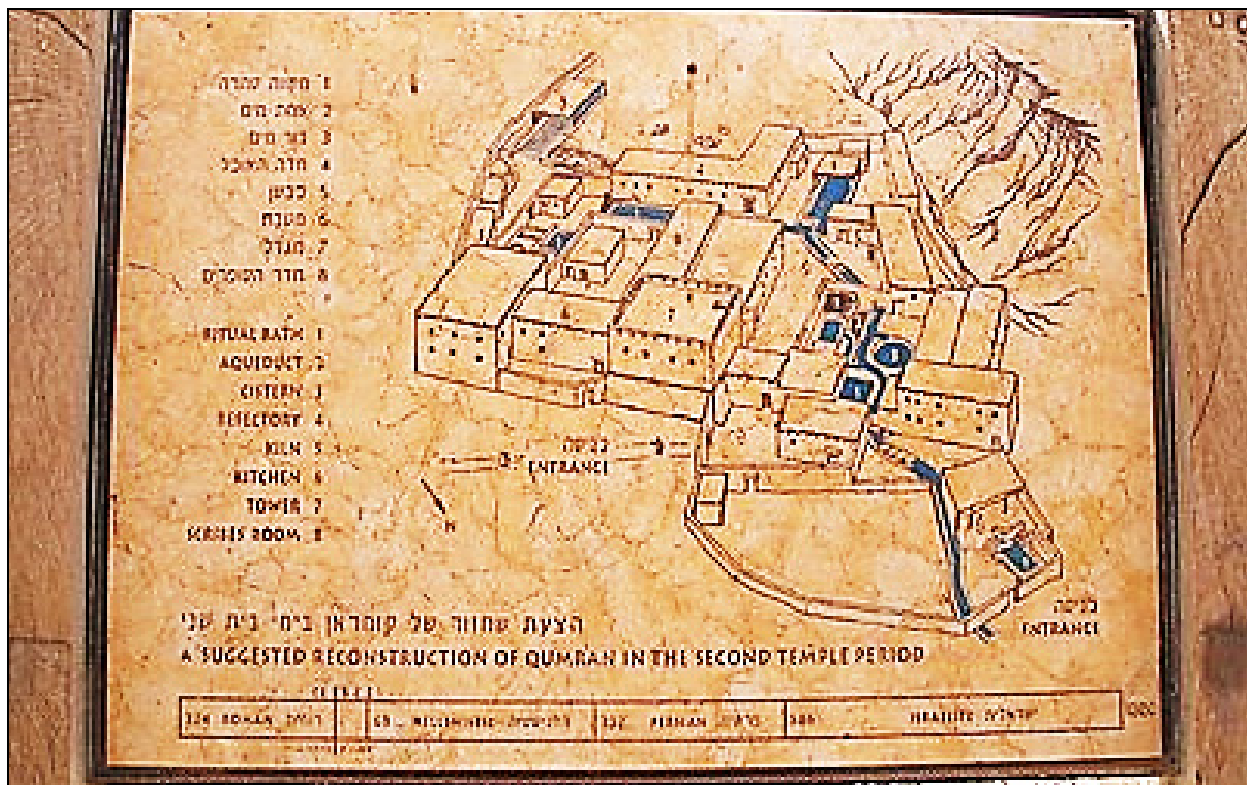 מקוה טהרה 1
אמת מים 2
בור מים 3
חדר האוכל 4
כבשן 5
מטבח 6
מגדל 7
חדר הסופרים 8
RITUAL BATH 1
AQUEDUCT 2
CISTERN 3
REFECTORY 4
KILN 5
KITCHEN 6
TOWER 7
SCRIBES ROOM 8
כניסה
ENTRANCE
N
כניסה
ENTRANCE
הצעת שחזור של קומראן בימי בית שני
A SUGGESTED RECONSTRUCTION OF QUMRAN IN THE SECOND TEMPLE PERIOD
ROMAN רומית
HELLENISTIC הלניסטית
PERSIAN פרסית
ISRAELITE ישראלית